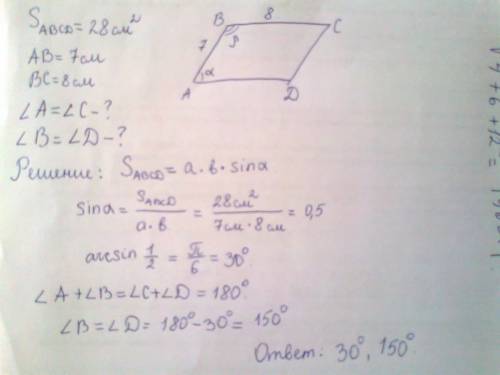 S_ABCD = 28 см²
AB = 7 см
BC = 8 см
∠A = ∠C - ?
∠B = ∠D - ?
B 8 C
7 β
α
A D
Решение: S_ABCD = a · b · sinα
sinα = S_ABCD / a · b = 28 см² / 7 см · 8 см = 0,5
arcsin 1/2 = π/6 = 30°
∠A + ∠B = ∠C + ∠D = 180°
∠B = ∠D = 180° - 30° = 150°
Ответ: 30°, 150°